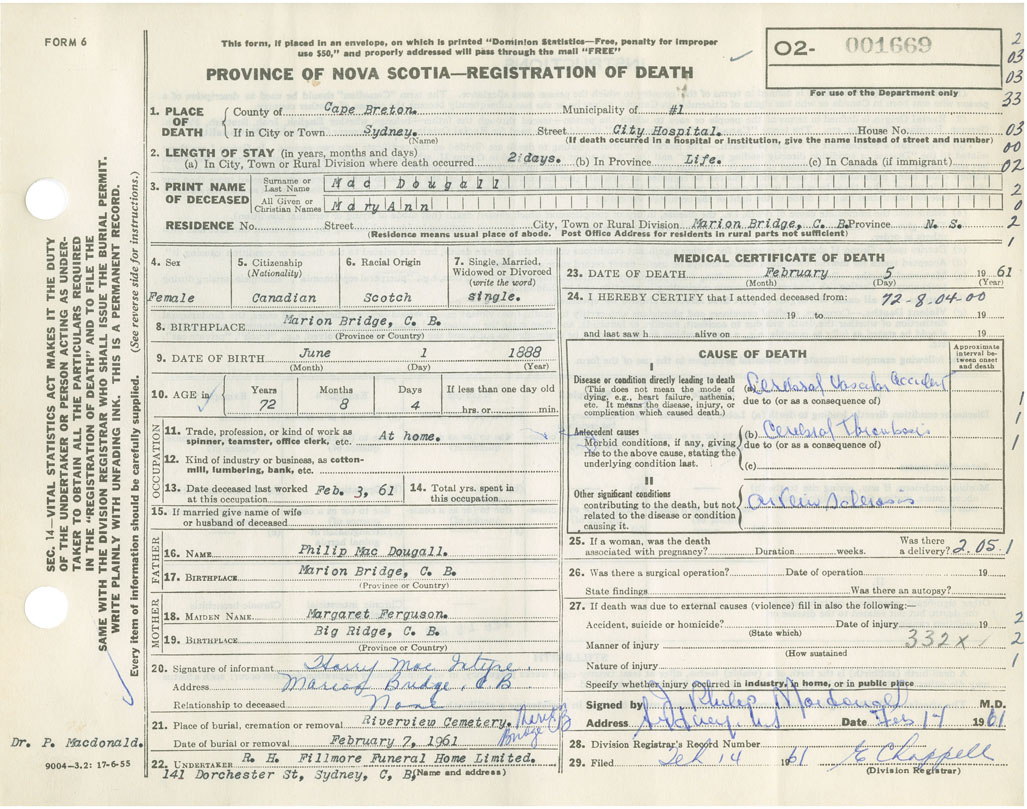 FORM 6
This form, if placed in an envelope, on which is printed "Dominion Statistics—Free, penalty for improper
use $50," and properly addressed will pass through the mail "FREE"
PROVINCE OF NOVA SCOTIA—REGISTRATION OF DEATH
02- 001669
For use of the Department only
2
03
03
33
03
00
02
2
0
2
1
1. PLACE OF DEATH
County of Cape Breton. Municipality of #1
If in City or Town Sydney. Street City Hospital. House No.
(Name) (If death occurred in a hospital or institution, give the name instead of street and number)
2. LENGTH OF STAY (in years, months and days)
(a) In City, Town or Rural Division where death occurred 2 days. (b) In Province Life. (c) In Canada (if immigrant)
3. PRINT NAME OF DECEASED
Surname or Last Name Mac Dougall
All Given or Christian Names Mary Ann
RESIDENCE No. Street City, Town or Rural Division Marion Bridge, C. B. Province N. S.
(Residence means usual place of abode. Post Office Address for residents in rural parts not sufficient)
4. Sex
Female
5. Citizenship
(Nationality)
Canadian
6. Racial Origin
Scotch
7. Single, Married,
Widowed or Divorced
(write the word)
single.
8. BIRTHPLACE Marion Bridge, C. B.
(Province or Country)
9. DATE OF BIRTH June 1 1888
(Month) (Day) (Year)
10. AGE in
Years Months Days If less than one day old
72 8 4 hrs. or min.
OCCUPATION
11. Trade, profession, or kind of work as
spinner, teamster, office clerk, etc. At home.
12. Kind of industry or business, as cotton-
mill, lumbering, bank, etc.
13. Date deceased last worked Feb. 3, 61
at this occupation
14. Total yrs. spent in
this occupation
15. If married give name of wife
or husband of deceased
FATHER
16. NAME Philip Mac Dougall.
17. BIRTHPLACE Marion Bridge, C. B.
(Province or Country)
MOTHER
18. MAIDEN NAME Margaret Ferguson.
19. BIRTHPLACE Big Ridge, C. B.
(Province or Country)
20. Signature of informant Harry Mac Intyre.
Address Marion Bridge, C B
Relationship to deceased None
21. Place of burial, cremation or removal Riverview Cemetery. Marion Bridge C B
Date of burial or removal February 7, 1961
22. UNDERTAKER R. H. Fillmore Funeral Home Limited.
141 Dorchester St, Sydney, C, B, (Name and address)
MEDICAL CERTIFICATE OF DEATH
23. DATE OF DEATH February 5 1961
(Month) (Day)
24. I HEREBY CERTIFY that I attended deceased from: 72-8-04-00
19 to 19
and last saw h alive on 19
CAUSE OF DEATH
Approximate interval between onset and death
I
Disease or condition directly leading to death
(This does not mean the mode of
dying, e.g., heart failure, asthenia,
etc. It means the disease, injury, or
complication which caused death.)
(a) Cerebral Vascular Accident
due to (or as a consequence of)
Antecedent causes
Morbid conditions, if any, giving
rise to the above cause, stating the
underlying condition last.
(b) Cerebral Thrombosis
due to (or as a consequence of)
(c)
1
1
1
II
Other significant conditions
contributing to the death, but not
related to the disease or condition
causing it.
Arterio Sclerosis
25. If a woman, was the death
associated with pregnancy? Duration weeks. Was there a delivery? 2.05.1
26. Was there a surgical operation? Date of operation 19
State findings Was there an autopsy?
27. If death was due to external causes (violence) fill in also the following:—
Accident, suicide or homicide? Date of injury 19 2
(State which)
Manner of injury 332X 2
(How sustained
Nature of injury 1
Specify whether injury occurred in industry, in home, or in public place
Signed by J. Philip Macdonald M.D.
Address Sydney, NS Date Feb 14 1961
28. Division Registrar's Record Number
29. Filed Feb 14 1961 E Chappell
(Division Registrar)
SEC. 14—VITAL STATISTICS ACT MAKES IT THE DUTY
OF THE UNDERTAKER OR PERSON ACTING AS UNDER-
TAKER TO OBTAIN ALL THE PARTICULARS REQUIRED
IN THE "REGISTRATION OF DEATH" AND TO FILE THE
SAME WITH THE DIVISION REGISTRAR WHO SHALL ISSUE THE BURIAL PERMIT.
WRITE PLAINLY WITH UNFADING INK. THIS IS A PERMANENT RECORD.
Every item of information should be carefully supplied. (See reverse side for instructions.)
Dr. P. Macdonald.
9004-3.2: 17-6-55